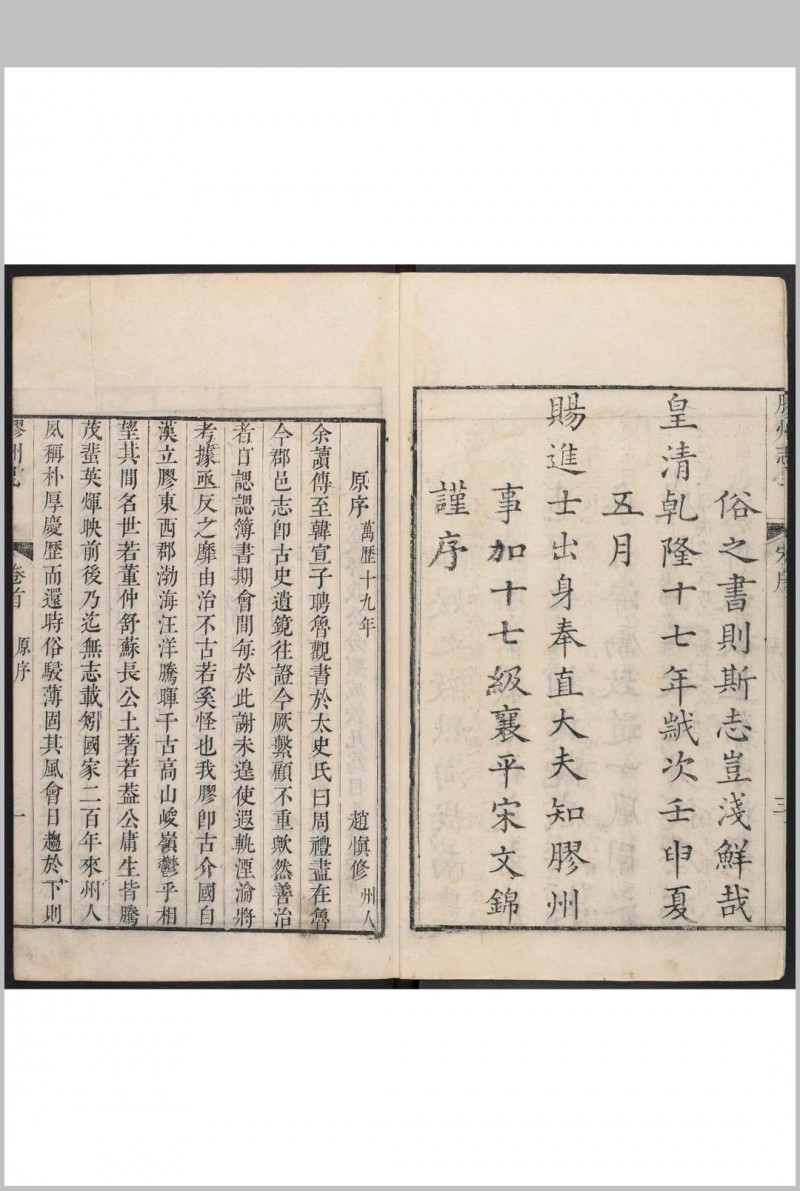 俗之書則斯志豈淺鮮哉
皇清乾隆十七年歲次壬申夏
五月
賜進士出身奉直大夫知膠州
事加十七級襄平宋文錦
謹序
原序 萬歷十九年 趙慎修 州人
余讀傳至韓宣子聘魯觀書於太史氏曰周禮盡在魯
今郡邑志卽古史遺鏡往證今厥繫顧不重歟然善治
者日諰諰簿書期會間每於此謝未遑使遐軌湮淪將
考據亟反之靡由治不古若奚怪也我膠卽古介國自
漢立膠東西郡渤海汪洋騰暉千古高山峻嶺鬱乎相
望其間名世若董仲舒蘇長公土著若葢公庸生皆騰
茂蜚英輝映前後乃迄無志載矧國家二百年來州人
夙稱朴厚慶歷而還時俗駸薄固其風會日趨於下則
膠州志 卷首 原序 一